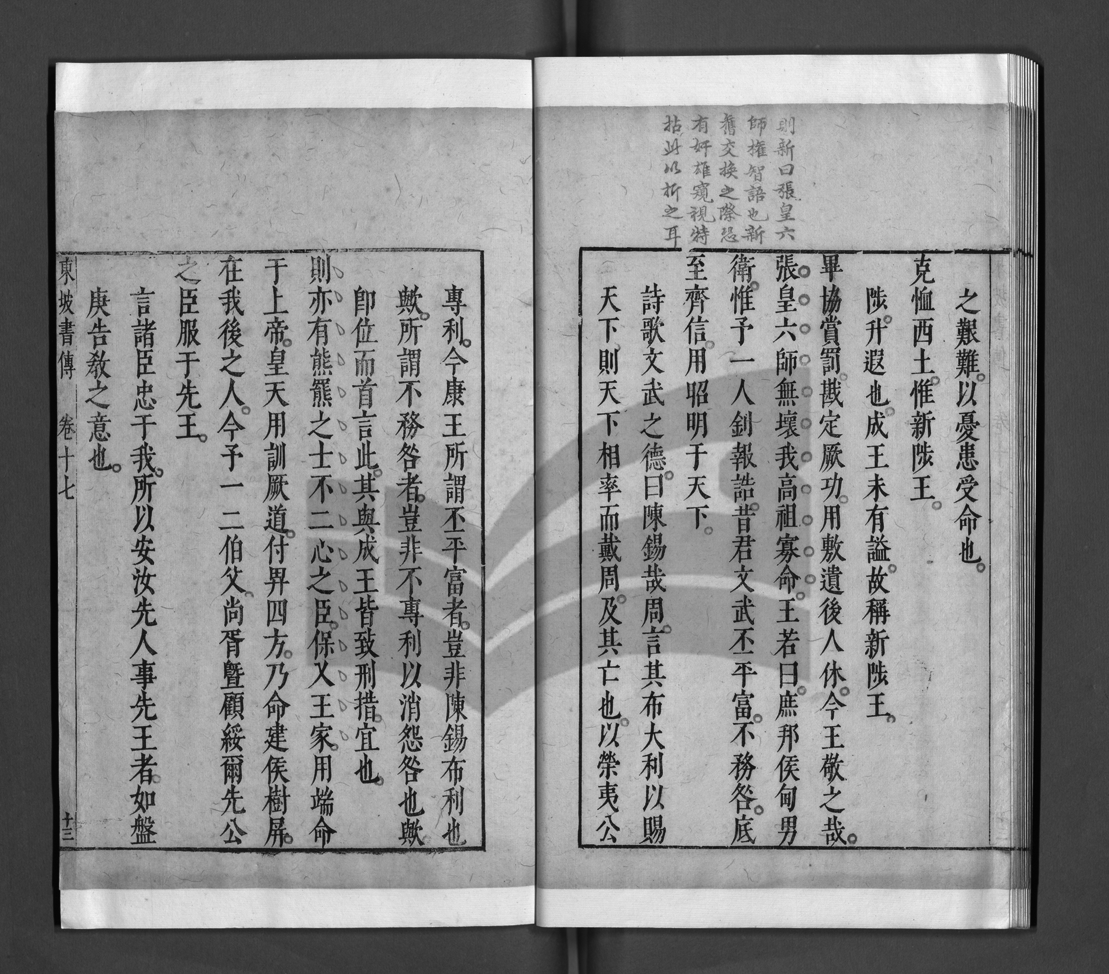 則新曰張皇六
師權智語也新
舊交換之際恐
有奸雄窺視特
拈此以折之耳
之艱難。以憂患受命也。
克恤西土。惟新陟王。
陟。升遐也。成王未有謚。故稱新陟王。
畢協賞罰。戡定厥功。用敷遺後人休。今王敬之哉。
張皇六師。無壞我高祖寡命。王若曰。庶邦侯甸男
衛。惟予一人釗報誥。昔君文武丕平富。不務咎。底
至齊信。用昭明于天下。
詩歌文武之德。曰陳錫哉周。言其布大利以賜
天下。則天下相率而戴周。及其亡也。以榮夷公
專利。今康王所謂丕平富者。豈非陳錫布利也
歟。所謂不務咎者。豈非不專利以消怨咎也歟
卽位而首言此。其與成王皆致刑措。宜也。
則亦有熊羆之士。不二心之臣。保乂王家。用端命
于上帝。皇天用訓厥道。付畀四方。乃命建侯樹屏。
在我後之人。今予一二伯父。尚胥曁顧綏爾先公
之臣服于先王。
言諸臣忠于我。所以安汝先人事先王者。如盤
庚告敎之意也。
東坡書傳 卷十七 十三